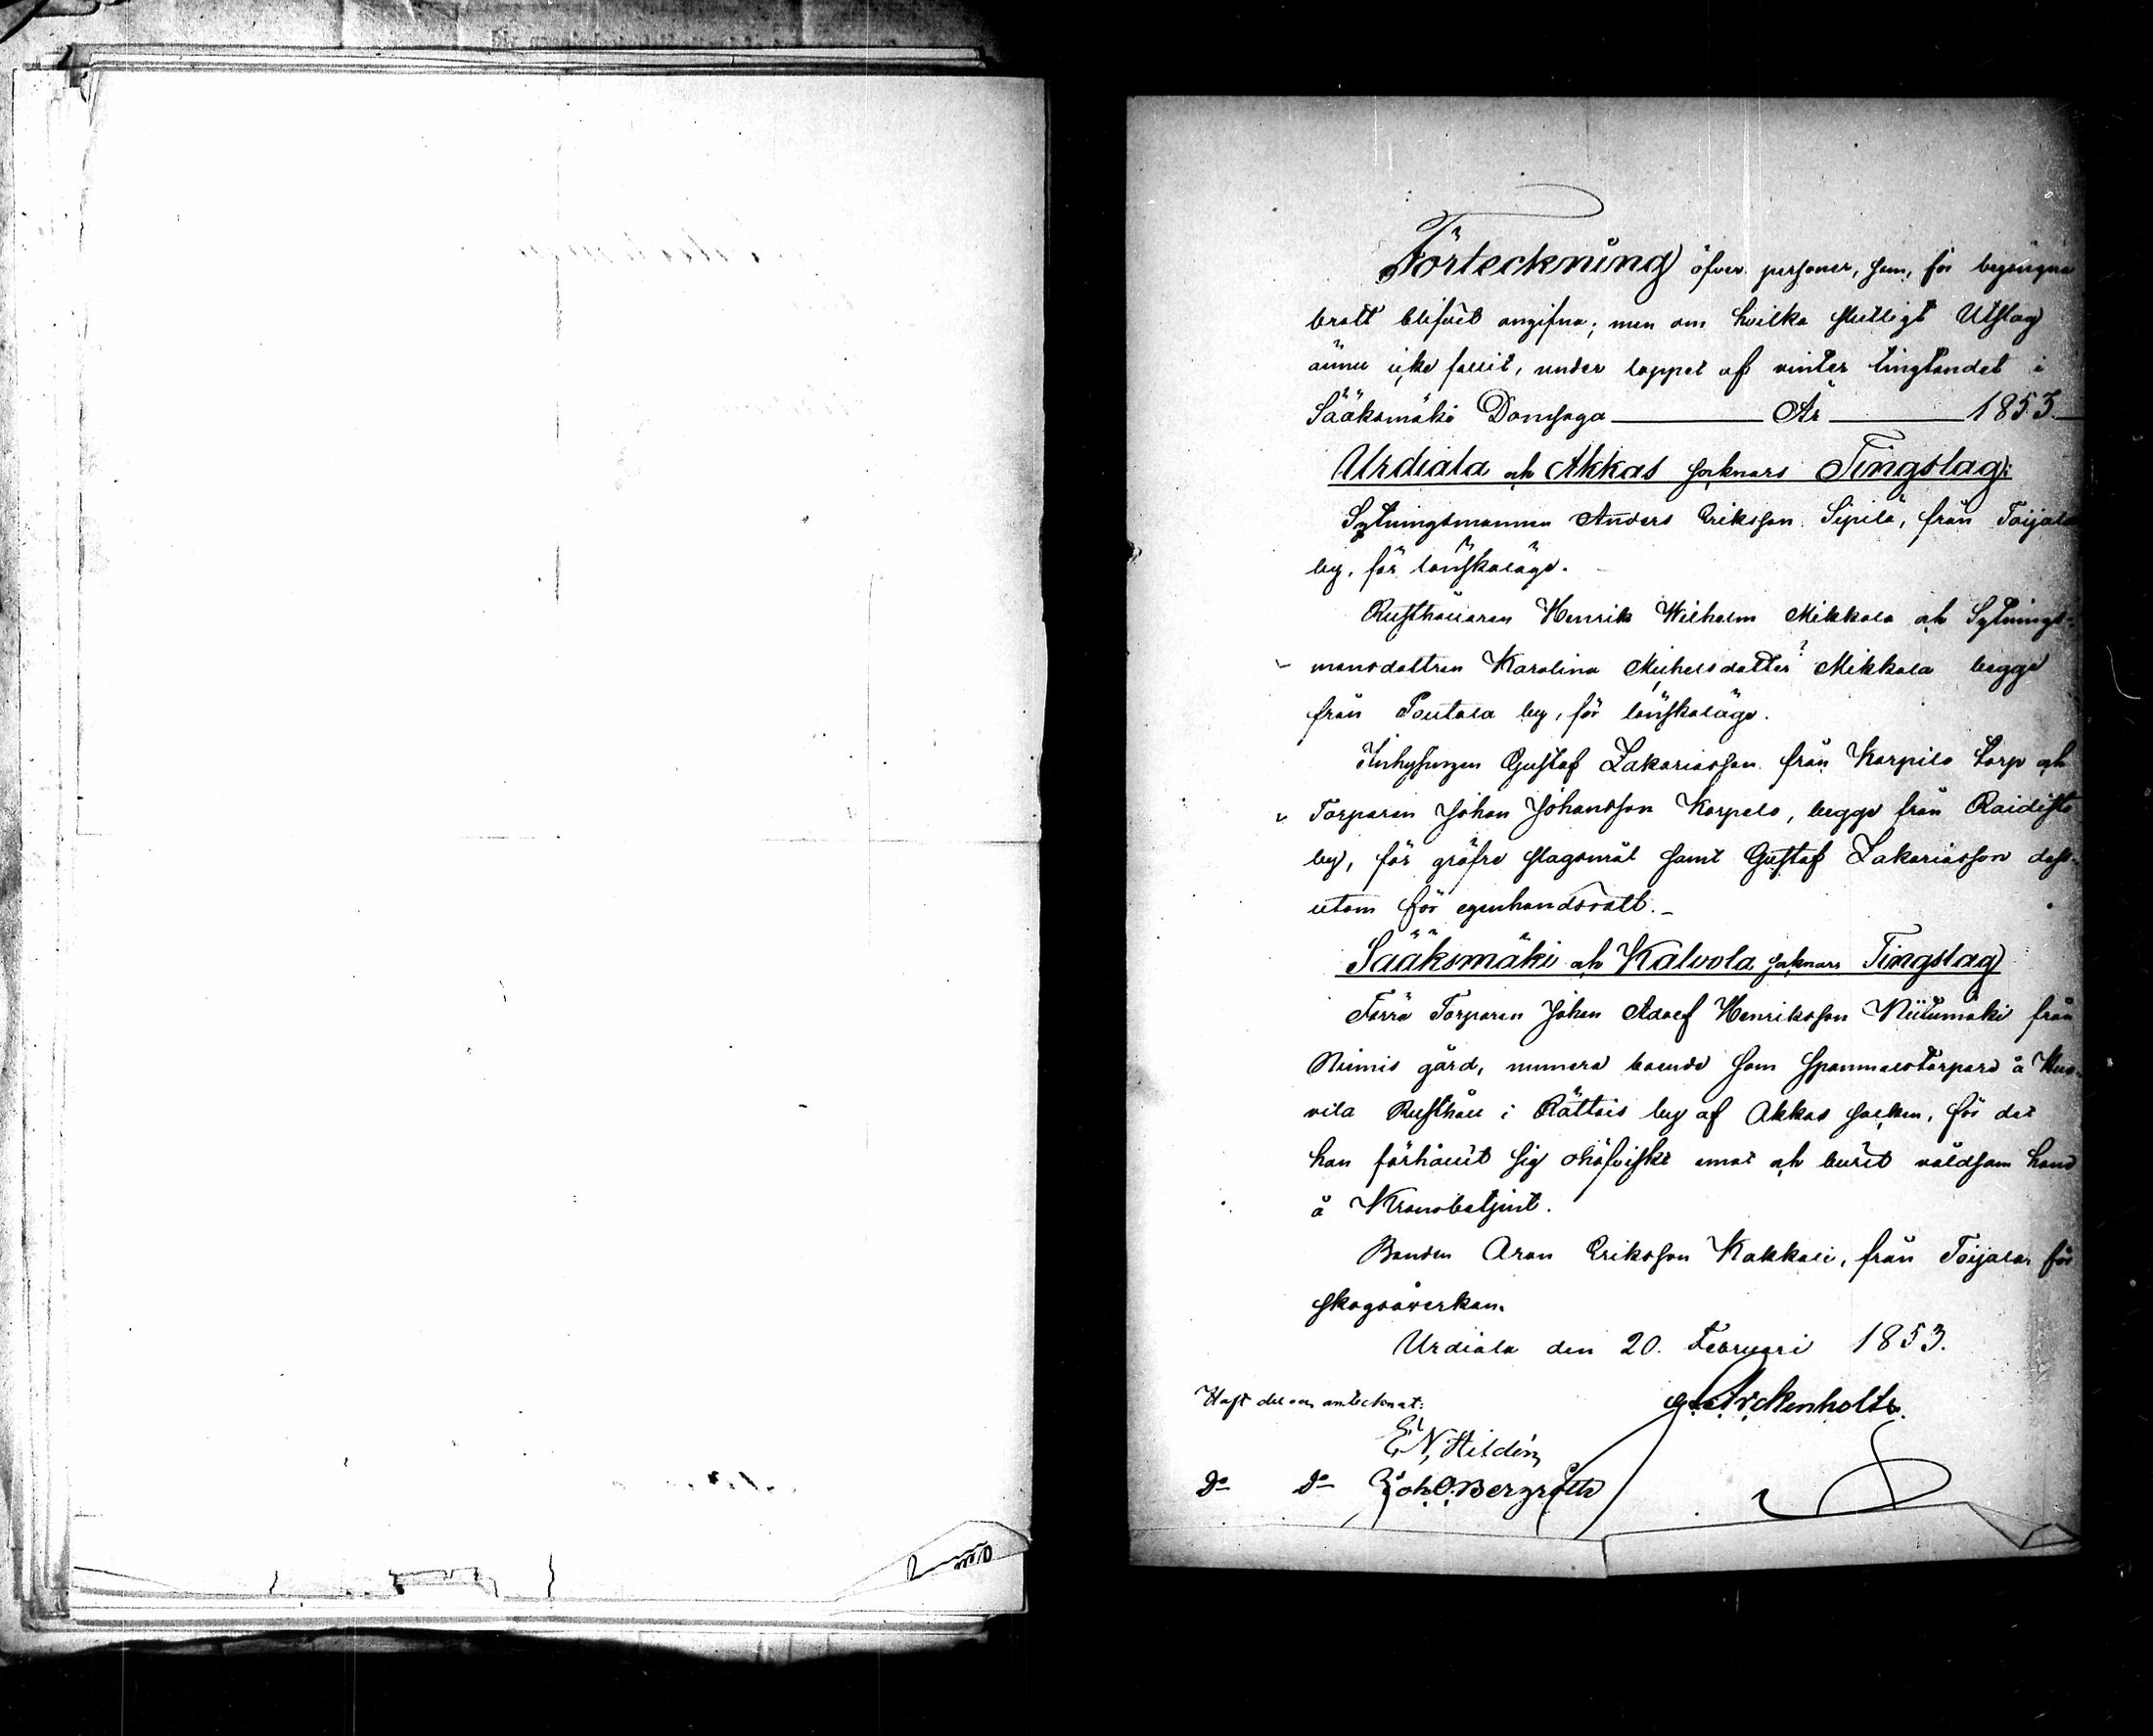 Förteckning öfver personer, som, för begångna
brott blifvit angifna; men om hvilka slutligt Utslag
ännu icke fallit, under loppet af vinter tingtandet i
Sääksmäki Domsaga År 1853.
Urdiala och Akkas socknars Tingslag;
Sytningsmannen Anders Eriksson Sipilä, från Toijala
by, för lönskaläge.
Rusthållaren Henrik Wilhelm Mikkola och Sytnings-
mansdottren Karolina Michelsdotter Mikkola begge
från Poutala by, för lönskaläge.
Inhysingen Gustaf Zakariasson från Korpilo torp och
Torparen Johan Johansson Korpelo, begge från Raidisto
by, för gröfre slagsmål samt Gustaf Zakariasson dess-
utom för egenhandsrätt.
Sääksmäki och Kalvola socknars Tingslag
Förra Torparen Johan Adolf Henriksson Niitumäki från
Niemis gård, numera boende som spanmåstorpare å
vila Rusthåll i Rättois by af Akkas socken, för det
han förhållit sig ohöfviskt emot och burit våldsam hand
å Kronobetjent.
Bonden Aron Eriksson Kakkali, från Toijala, för
skogsåverkan.
Urdiala den 20. Februari 1853.
Haft del och antecknat: Arckenholtz.
E. N. Hildén
Do Do Joh. O. Bergroth